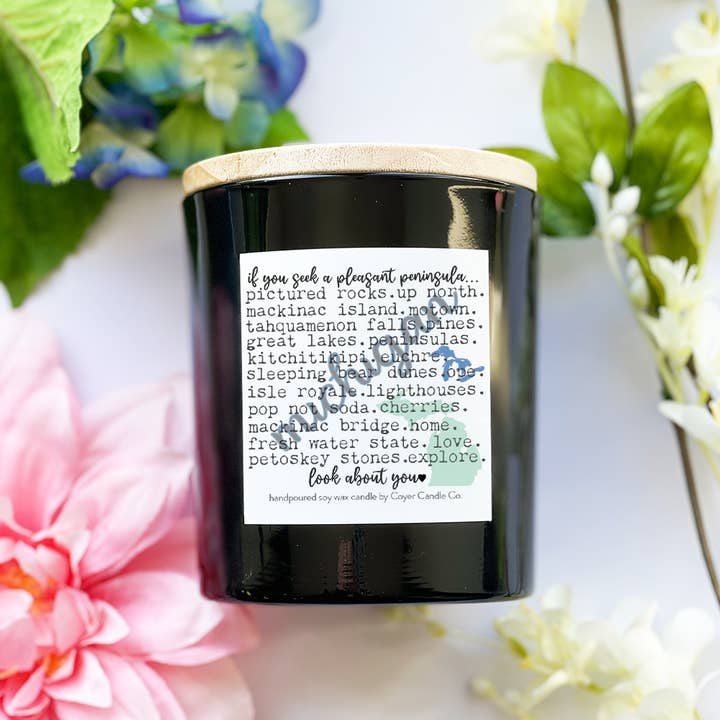 if you seek a pleasant peninsula...
pictured rocks.up north.
mackinac island.motown.
tahquamenon falls.pines.
great lakes.peninsulas.
kitchitikipi.euchre.
sleeping bear dunes.ope.
isle royale.lighthouses.
pop not soda.cherries.
mackinac bridge.home.
fresh water state.love.
petoskey stones.explore.
look about you♥
handpoured soy wax candle by Coyer Candle Co.
michigan